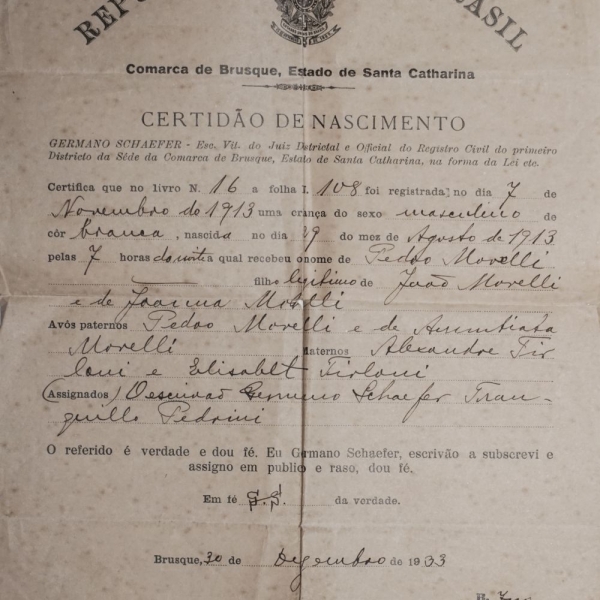 Comarca de Brusque, Estado de Santa Catharina
CERTIDÃO DE NASCIMENTO
GERMANO SCHAEFER - Esc. Vit. do Juiz Districtal e Official do Registro Civil do primeiro
Districto da Séde da Comarca de Brusque, Estado de Santa Catharina, na forma da Lei etc.
Certifica que no livro N. 16 a folha I. 108 foi registrada no dia 7 de
Novembro de 1913 uma criança do sexo masculino de
côr branca, nascida no dia 29 do mez de Agosto de 1913
pelas 7 horas da noite a qual recebeu o nome de Pedro Morelli
filho legitimo de João Morelli
e de Joanna Morelli
Avós paternos Pedro Morelli e de Annuntiata
Morelli maternos Alexandre Tir
loni e Elisabet Tirloni
(Assignados) O escrivão Germano Schaefer Tran-
quillo Pedrini
O referido é verdade e dou fé. Eu Germano Schaefer, escrivão a subscrevi e
assigno em publico e raso, dou fé.
Em fé G.S. da verdade.
Brusque, 30 de Dezembro de 1933